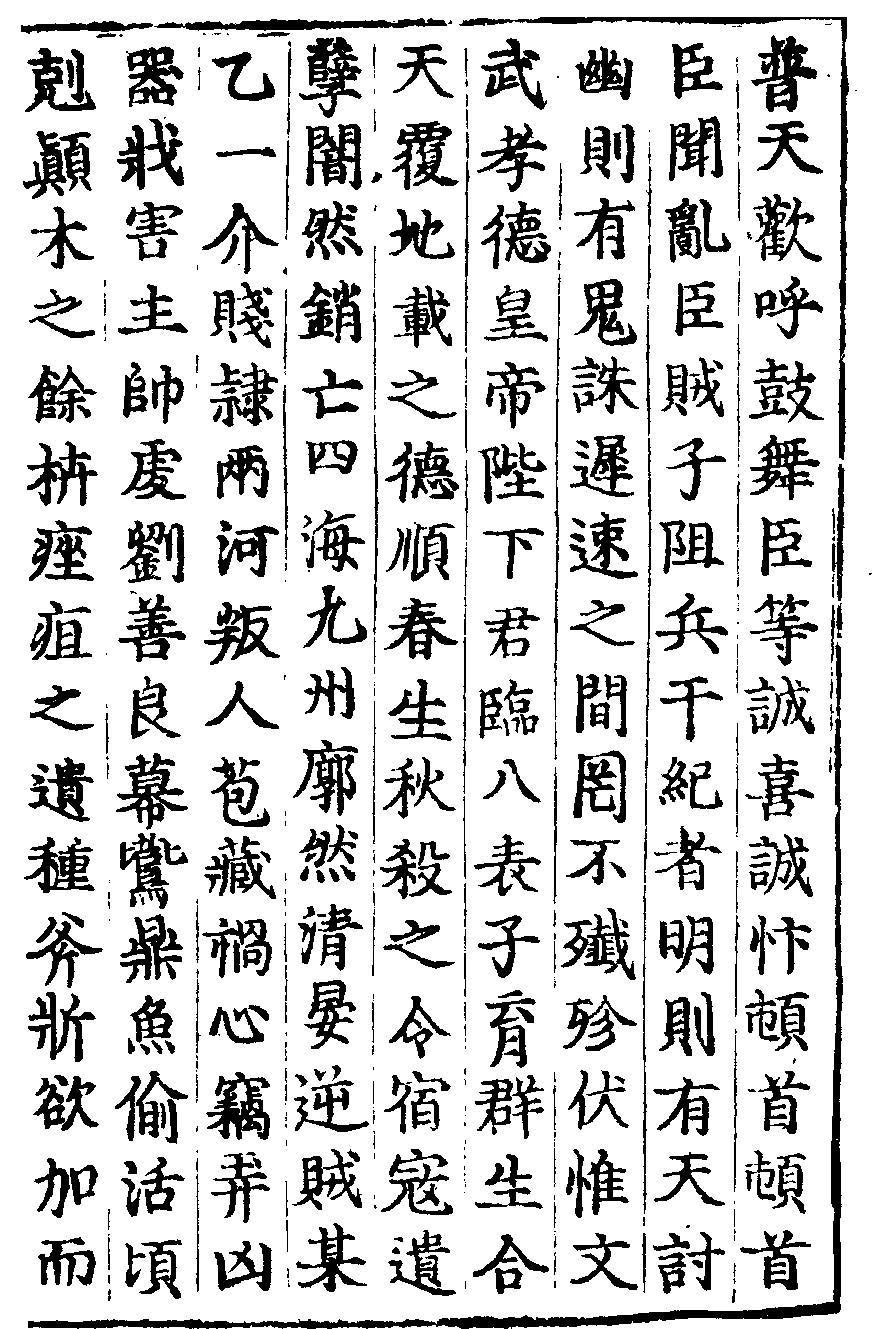 普天歡呼鼓舞臣等誠喜誠忭頓首頓首
臣聞亂臣賊子阻兵干紀者明則有天討
幽則有鬼誅遲速之間罔不殲殄伏惟文
武孝德皇帝陛下君臨八表子育群生合
天覆地載之德順春生秋殺之令宿寇遺
孽闇然銷亡四海九州廓然清晏逆賊某
乙一介賤隸兩河叛人苞藏禍心竊弄凶
器戕害主帥虔劉善良幕鷰鼎魚偷活頃
剋顛木之餘枿痤疽之遺種斧斨欲加而